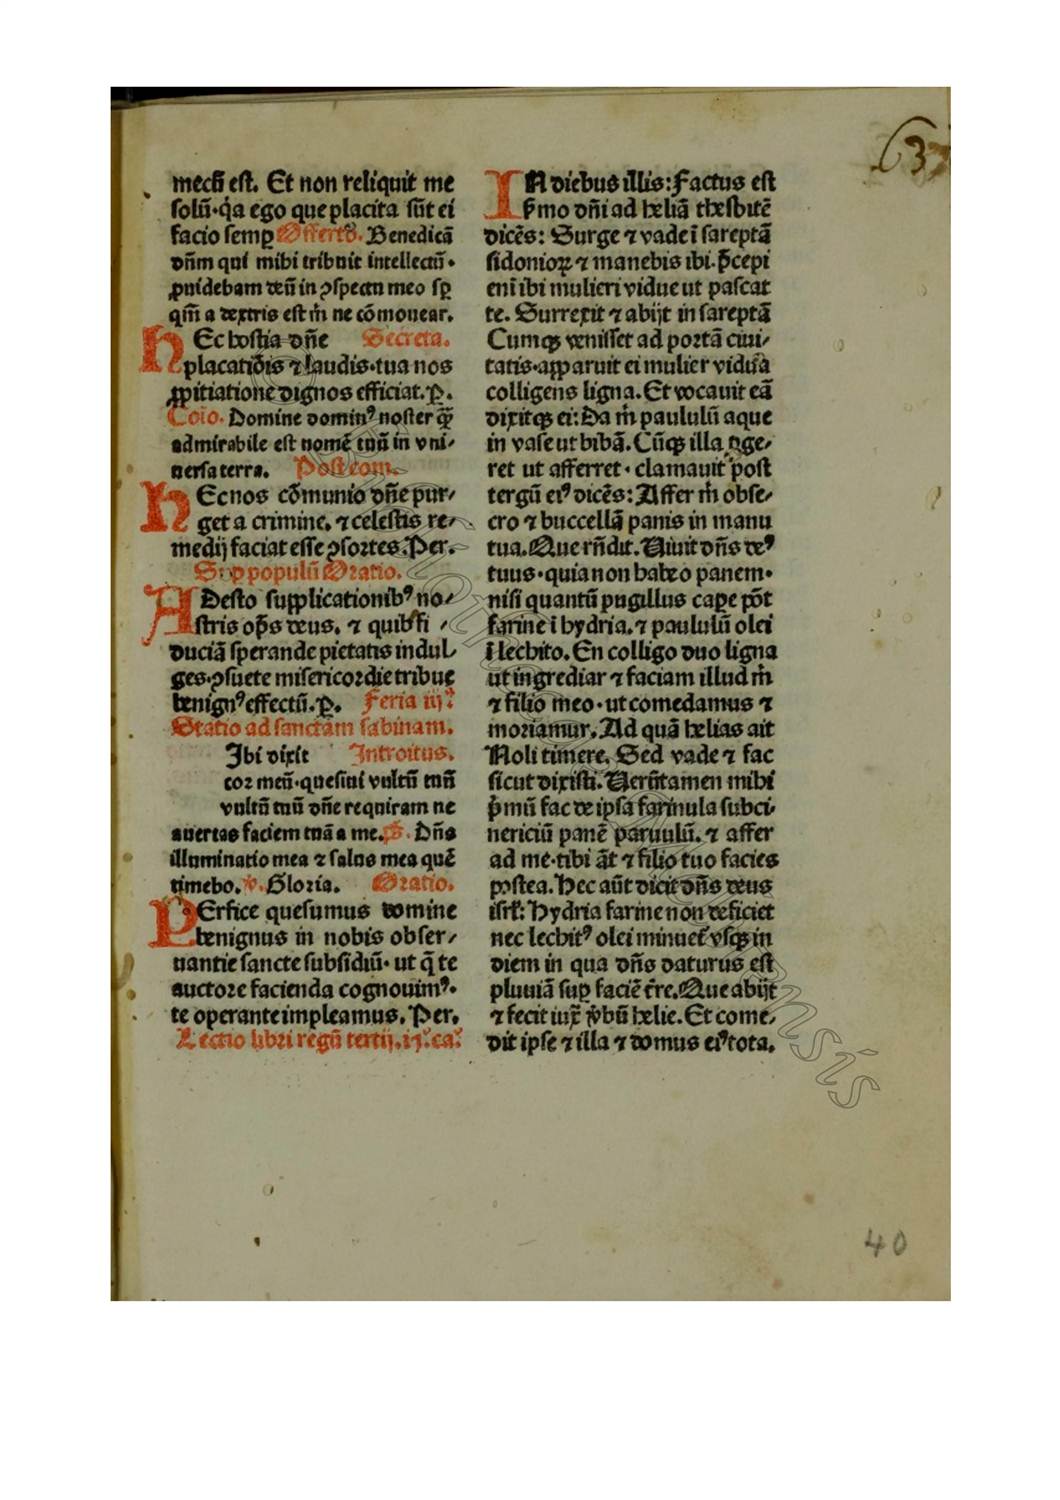 637
mecū est. Et non reliquit me
solū·q̇a ego que placita sūt ei
facio semꝑ Offertō. Benedicā
dn̄m qui mihi tribuit intellectū·
ꝓuidebam deū in ꝯspectu meo sꝑ
qm̄ a dextris est m̄ ne cōmouear.
HEc hostia dn̄e Secreta.
placatiōis ⁊ laudis·tua nos
ꝓpitiatione dignos efficiat.ꝑ.
Coīo. Domine dominꝰ noster q̄ꝫ
admirabile est nomē tuū in vni⸗
uersa terra. Postcom.
HEc nos cōmunio dn̄e pur⸗
get a crimine. ⁊ celestis re⸗
medij faciat esse ꝯsortes.Per.
Suꝑ populū Oratio.
ADesto supplicationibꝰ no⸗
stris op̄s deus. ⁊ quibꝰ fi⸗
duciā sperande pietatis indul⸗
ges·ꝯsuete misericordie tribue
benignꝰ effectū.ꝑ. Feria iij.
Statio ad sanctam sabinam.
Ibi dixit Introitus.
cor meū·quesiui vultū tuū
vultū tuū dn̄e requiram ne
auertas faciem tuā a me.ps̄. Dn̄s
illuminatio mea ⁊ salus mea quē
timebo.v̄. Gloria. Oratio.
PErfice quesumus domine
benignus in nobis obser⸗
uantie sancte subsidiū· ut q̄ te
auctore facienda cognouimꝰ·
te operante impleamus. Per.
Lectio libri regū tertij.17.ca.
IN diebus illis:Factus est
ẜmo dn̄i ad heliā thesbitē
dicēs: Surge ⁊ vade ī sareptā
sidonioꝝ ⁊ manebis ibi.p̄cepi
enī ibi mulieri vidue ut pascat
te. Surrexit ⁊ abijt in sareptā
Cumqꝫ venisset ad portā ciui⸗
tatis·apparuit ei mulier vidua
colligens ligna. Et vocauit eā
dixitqꝫ ei: Da m̄ paululū aque
in vase ut bibā. Cūqꝫ illa ꝑge⸗
ret ut afferret· clamauit post
tergū eiꝰ dicēs: Affer m̄ obse⸗
cro ⁊ buccellā panis in manu
tua.Que rn̄dit. Uiuit dn̄s deꝰ
tuus·quia non habeo panem·
nisi quantū pugillus caꝑe pōt
farine ī hydria.⁊ paululū olei
ī lechito. En colligo duo ligna
ut ingrediar ⁊ faciam illud m̄
⁊ filio meo·ut comedamus ⁊
moriamur. Ad quā helias ait
Noli timere. Sed vade ⁊ fac
sicut dixisti. Uerūtamen mihi
p̄mū fac de ipsa farinula subci⸗
nericiū panē paruulū. ⁊ affer
ad me·tibi āt ⁊ filio tuo facies
postea. Hec aūt dicit dn̄s deus
isrl̄: Hydria farine non deficiet
nec lechitꝰ olei minuet᷑ vsqꝫ in
diem in qua dn̄s daturus est
pluuiā suꝑ faciē t̄re.Que abijt
⁊ fecit iux̄ v̄bū helie. Et come⸗
dit ipse ⁊ illa ⁊ domus eiꝰ tota.
40